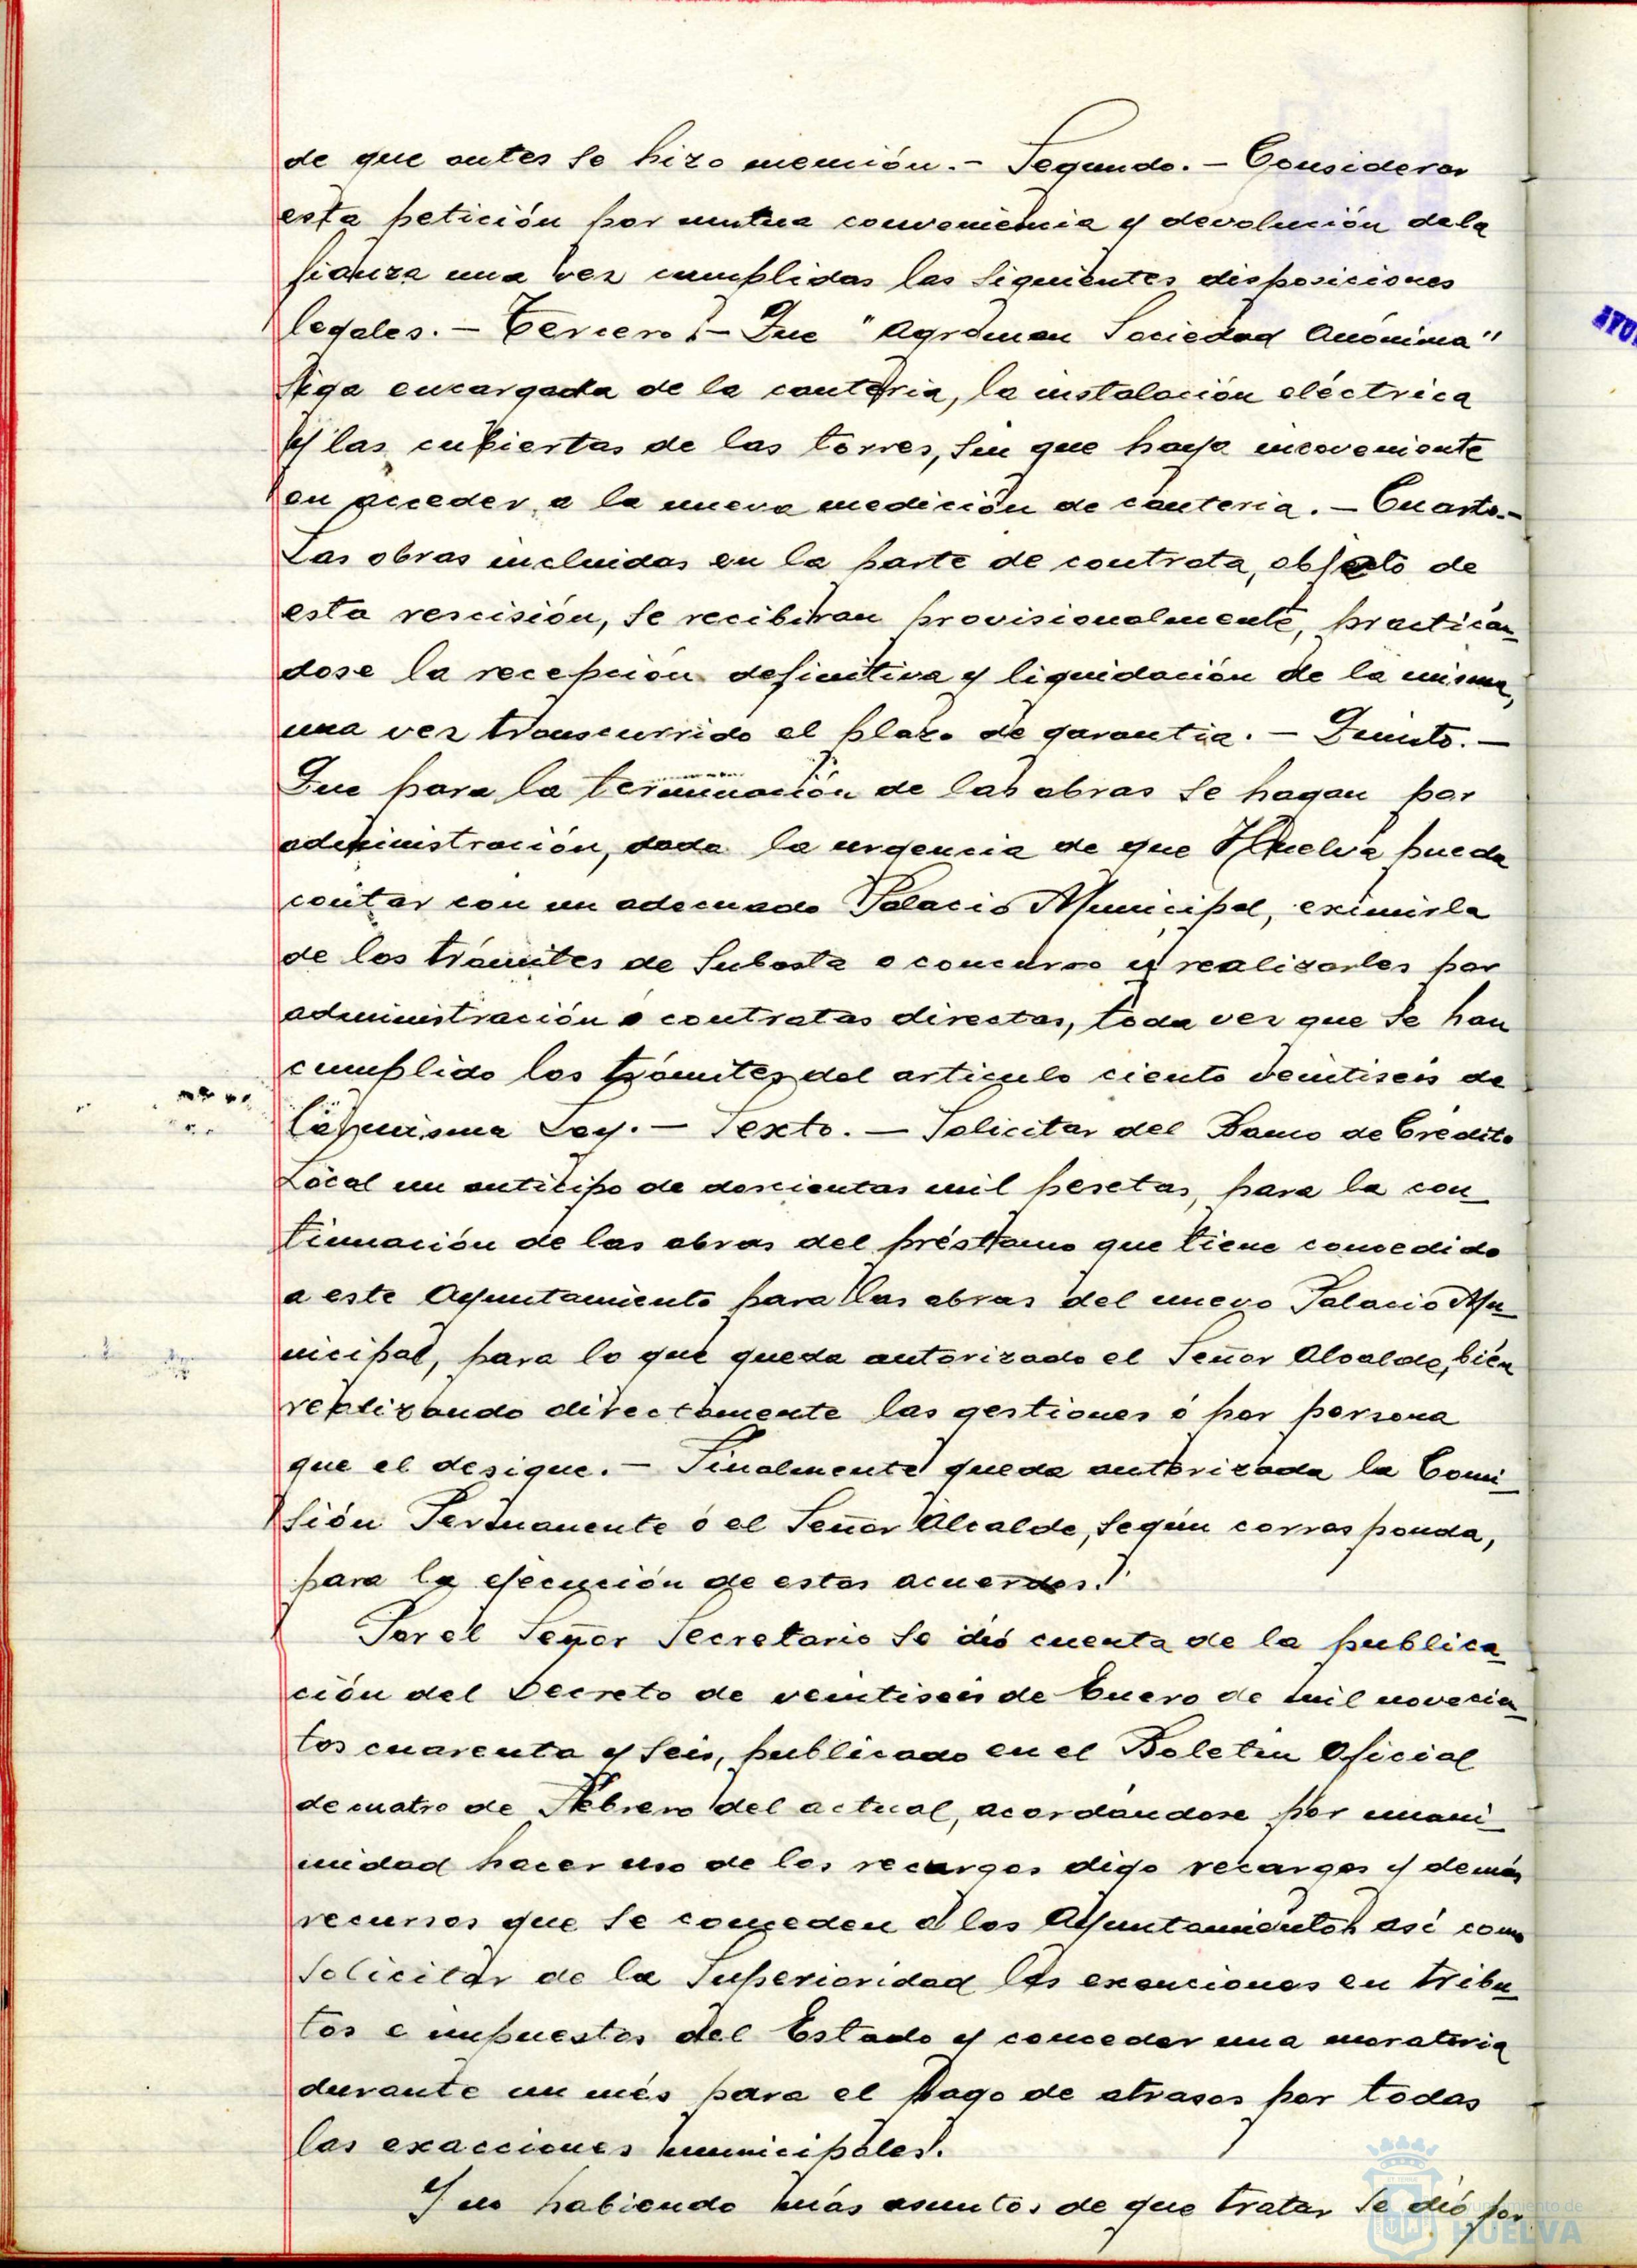 de que antes se hizo mención.- Segundo. - Considerar
esta petición por mutua conveniencia y devolución de la
fianza una vez cumplidas las siguientes disposiciones
legales. - Tercero.- Que "Agroman Sociedad Anónima"
siga encargada de la cantería, la instalación eléctrica
y las cubiertas de las torres, sin que haya incoveniente
en acceder a la nueva medición de canteria. - Cuarto.-
Las obras incluidas en la parte de contrata, objeto de
esta rescisión, se recibiran provisionalmente, practicán
dose la recepción definitiva y liquidación de la misma,
una vez transcurrido el plazo de garantia. - Quinto. -
Que para la terminación de las obras se hagan por
administración, dada la urgencia de que Huelva pueda
contar con un adecuado Palacio Municipal, eximirla
de los trámites de subasta o concurso y realizarles por
administración o contratas directas, toda vez que se han
cumplido los trámites del articulo ciento veintiseis de
la misma Ley. - Sexto. - Solicitar del Banco de Crédito
Local un anticipo de doscientas mil pesetas, para la con
tinuación de las obras del préstamo que tiene concedido
a este Ayuntamiento para las obras del nuevo Palacio Mu
nicipal, para lo que queda autorizado el Señor Alcalde, bién
realizando directamente las gestiones ó por persona
que el desigue. - Finalmente queda autorizada la Comi
sión Permanente ó el Señor Alcalde, según corresponda,
para la ejecución de estos acuerdos."
Por el Señor Secretario se dió cuenta de la publica
ción del Decreto de veintiseis de Enero de mil novecien
tos cuarenta y seis, publicado en el Boletin Oficial
de cuatro de Febrero del actual, acordándose por unani
midad hacer uso de los recurgos digo recargos y demás
recursos que se conceden a los Ayuntamientos así como
solicitar de la Superioridad las exenciones en tribu
tos e impuestos del Estado y conceder una moratoria
durante un més para el pago de atrasos por todas
las exacciones municipales.
Y no habiendo más asuntos de que tratar se dió por
Ayuntamiento de
HUELVA